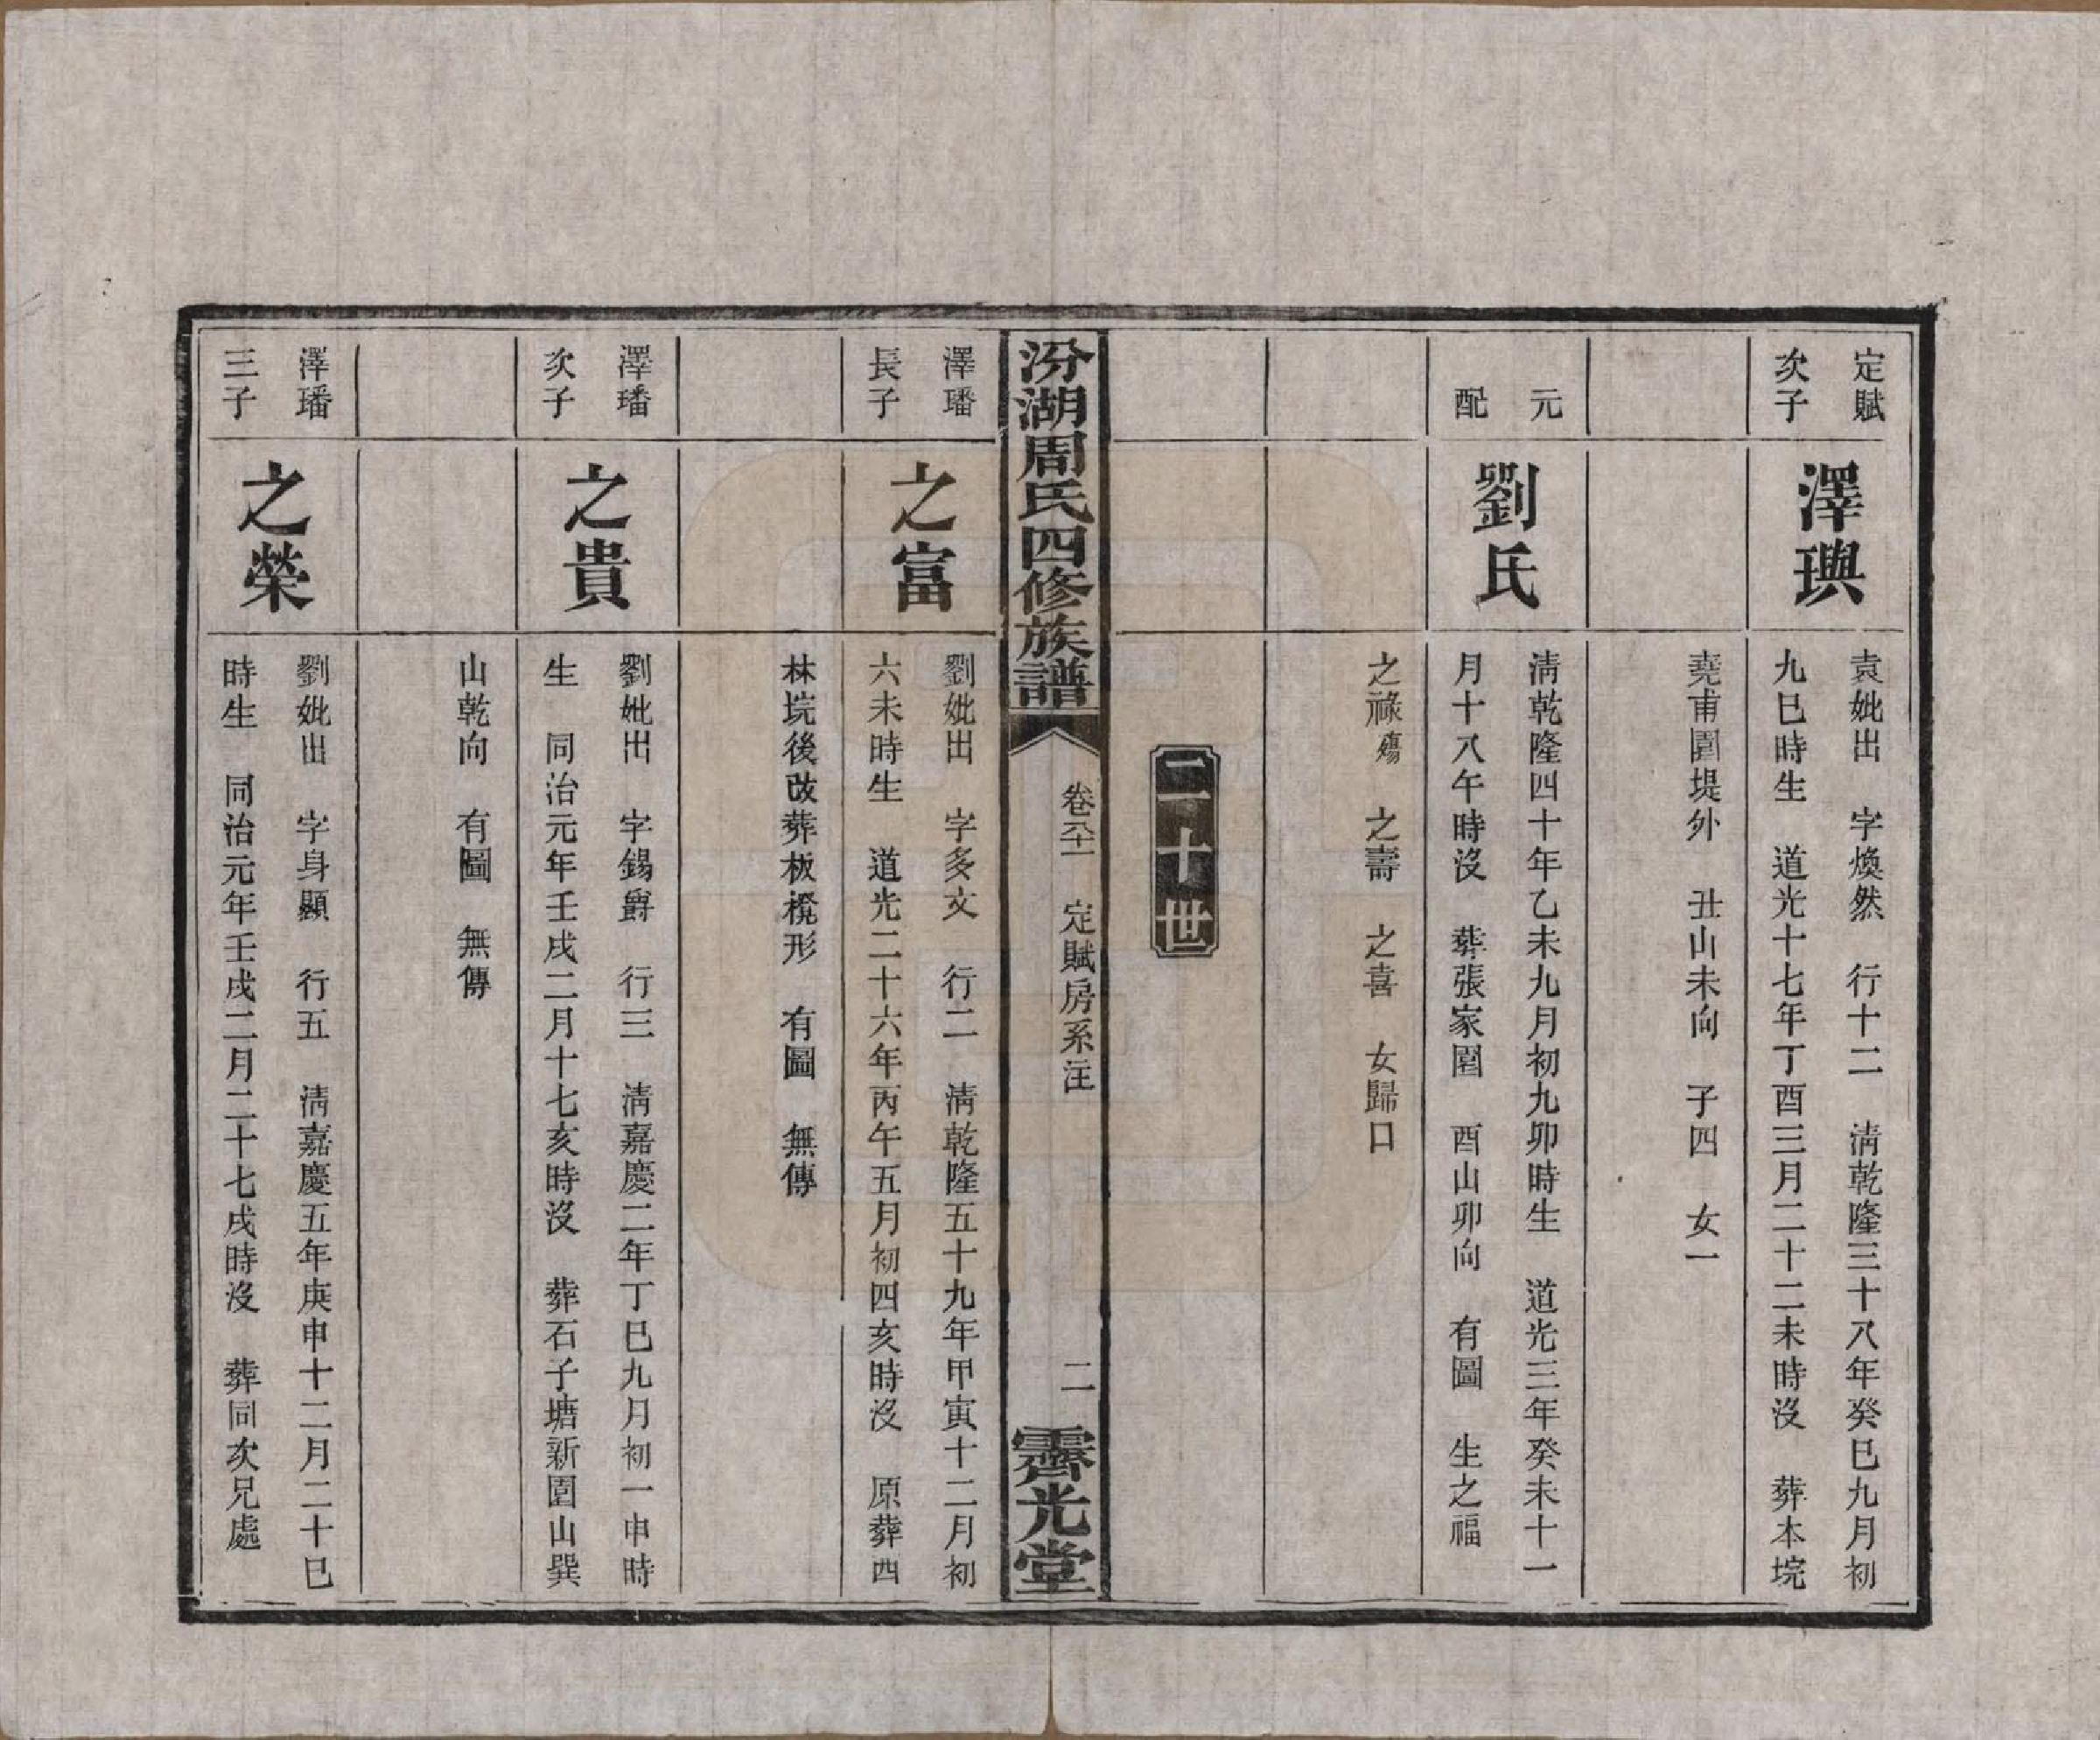 定賦
次子
澤璵
袁妣出　字煥然　行十二　清乾隆三十八年癸巳九月初
九巳時生　道光十七年丁酉三月二十二未時沒　葬本垸
堯甫圍堤外　丑山未向　子四　女一
元
配
劉氏
清乾隆四十年乙未九月初九卯時生　道光三年癸未十一
月十八午時沒　葬張家園　酉山卯向　有圖　生之福
之祿殤　之壽　之喜　女歸口
二十世
汾湖周氏四修族譜
卷六十一　定賦房系注
二
霽光堂
澤璠
長子
之富
劉妣出　字多文　行二　清乾隆五十九年甲寅十二月初
六未時生　道光二十六年丙午五月初四亥時沒　原葬西
林垸後改葬板櫈形　有圖　無傳
澤璠
次子
之貴
劉妣出　字錫爵　行三　清嘉慶二年丁巳九月初一申時
生　同治元年壬戌二月十七亥時沒　葬石子塘新園山巽
山乾向　有圖　無傳
澤璠
三子
之榮
劉妣出　字身顯　行五　清嘉慶五年庚申十二月二十巳
時生　同治元年壬戌二月二十七戌時沒　葬同次兄處